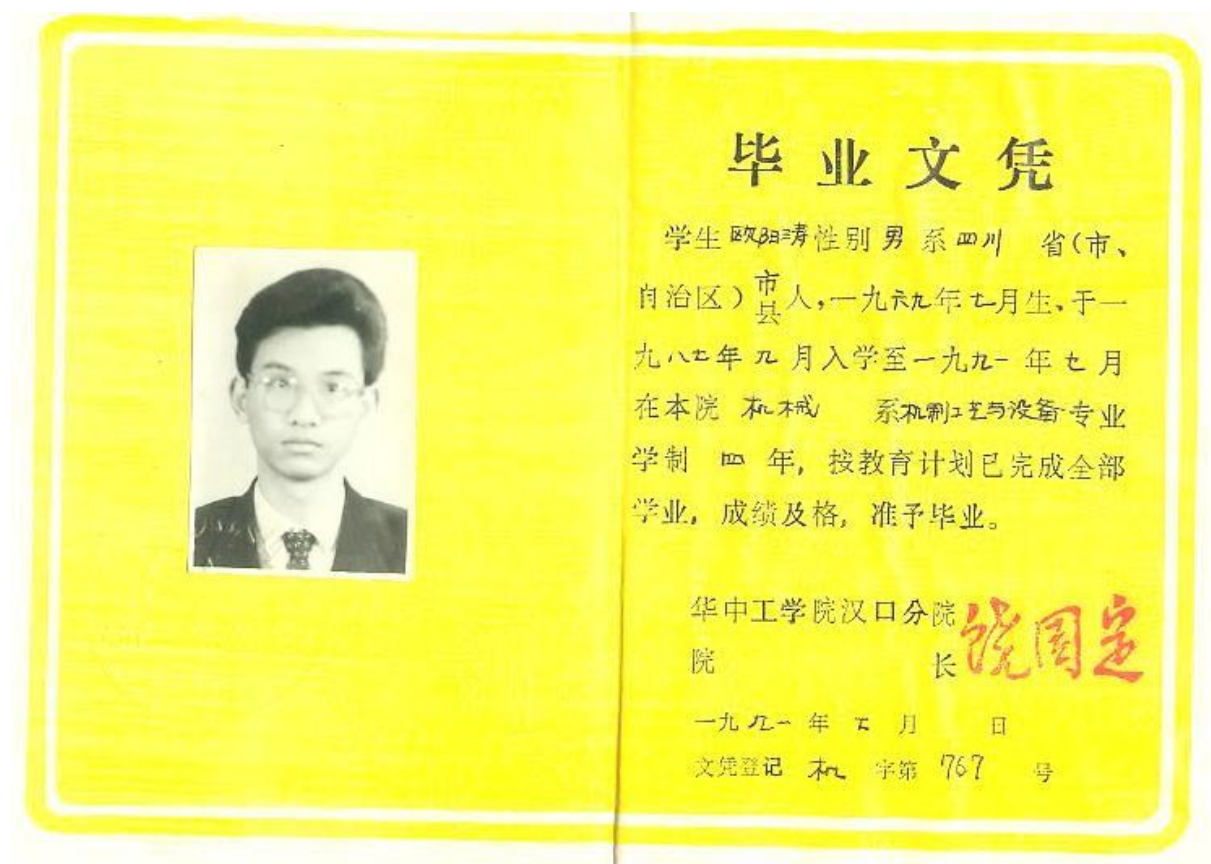 毕业文凭
学生欧阳靖性别男系四川 省(市、
自治区)市县人,一九六九年七月生、于一
九八七年九月入学至一九九一年七月
在本院 机械 系机制工艺与设备专业
学制 四 年, 按教育计划已完成全部
学业, 成绩及格, 准予毕业。
华中工学院汉口分院
院 长 饶国定
一九九一年 七 月 日
文凭登记 机 字第 767 号